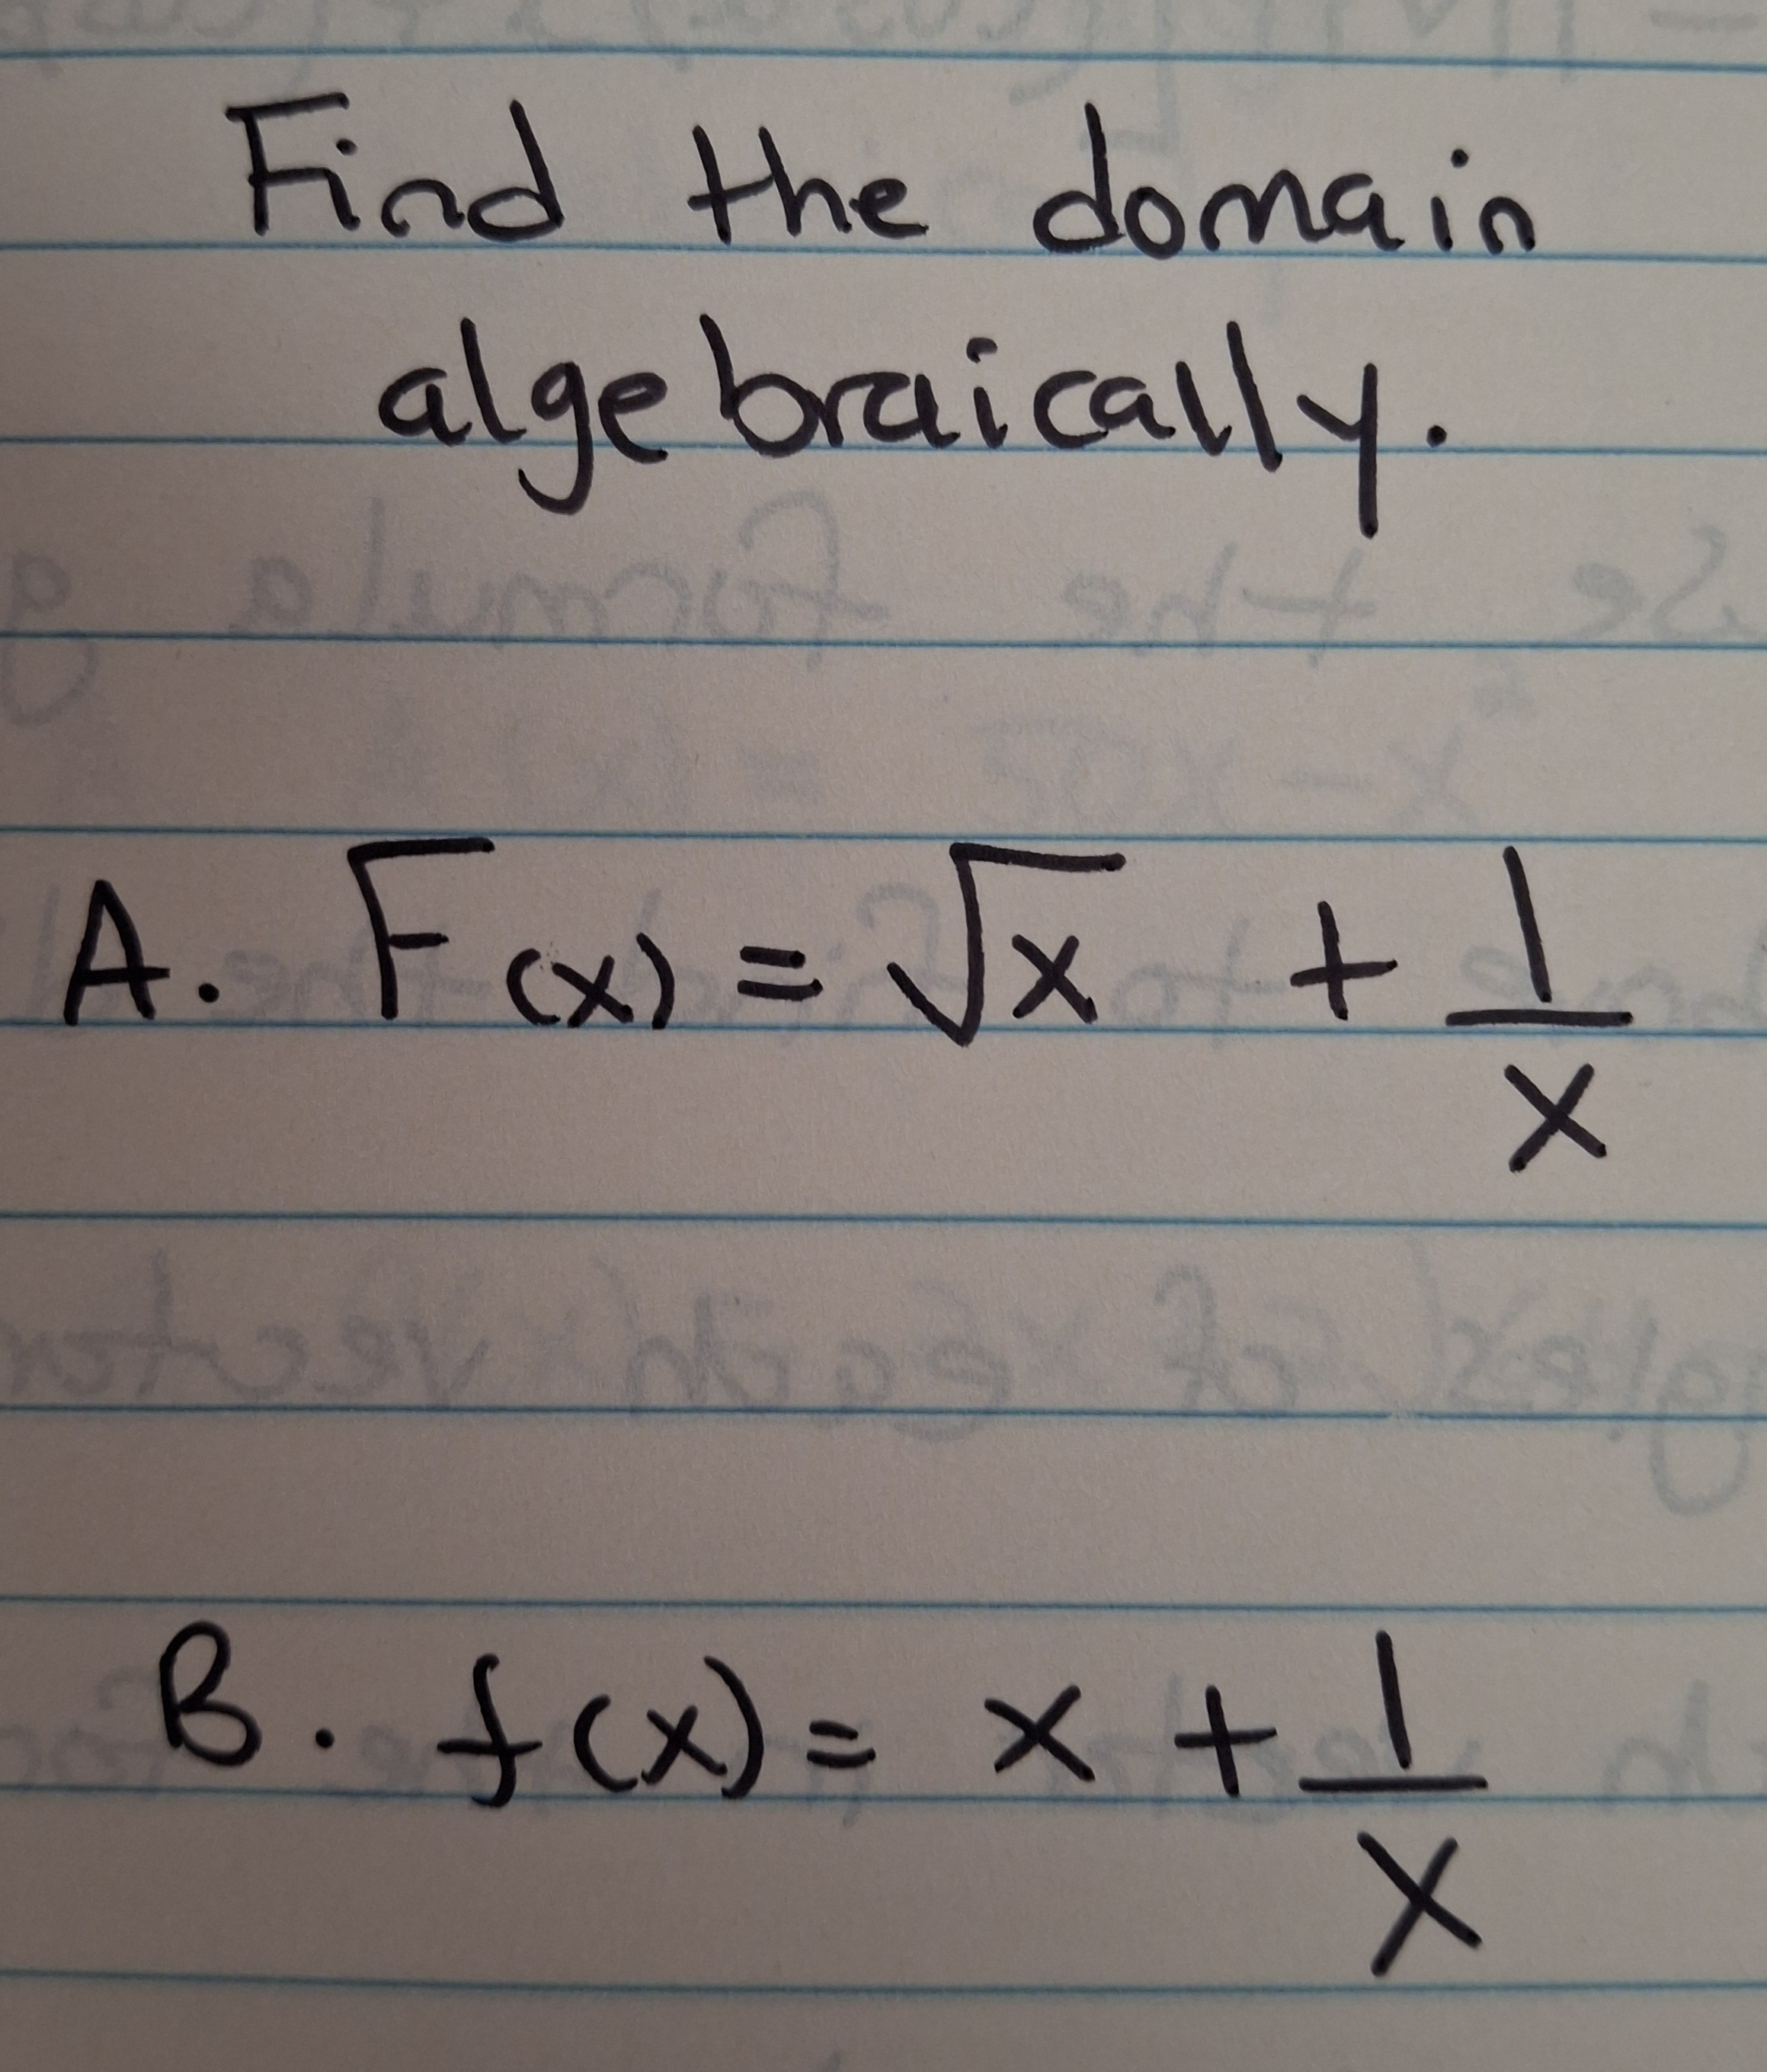 Find the domain
algebraically.
A. F(x) = √x + 1/x
B. f(x) = x + 1/x